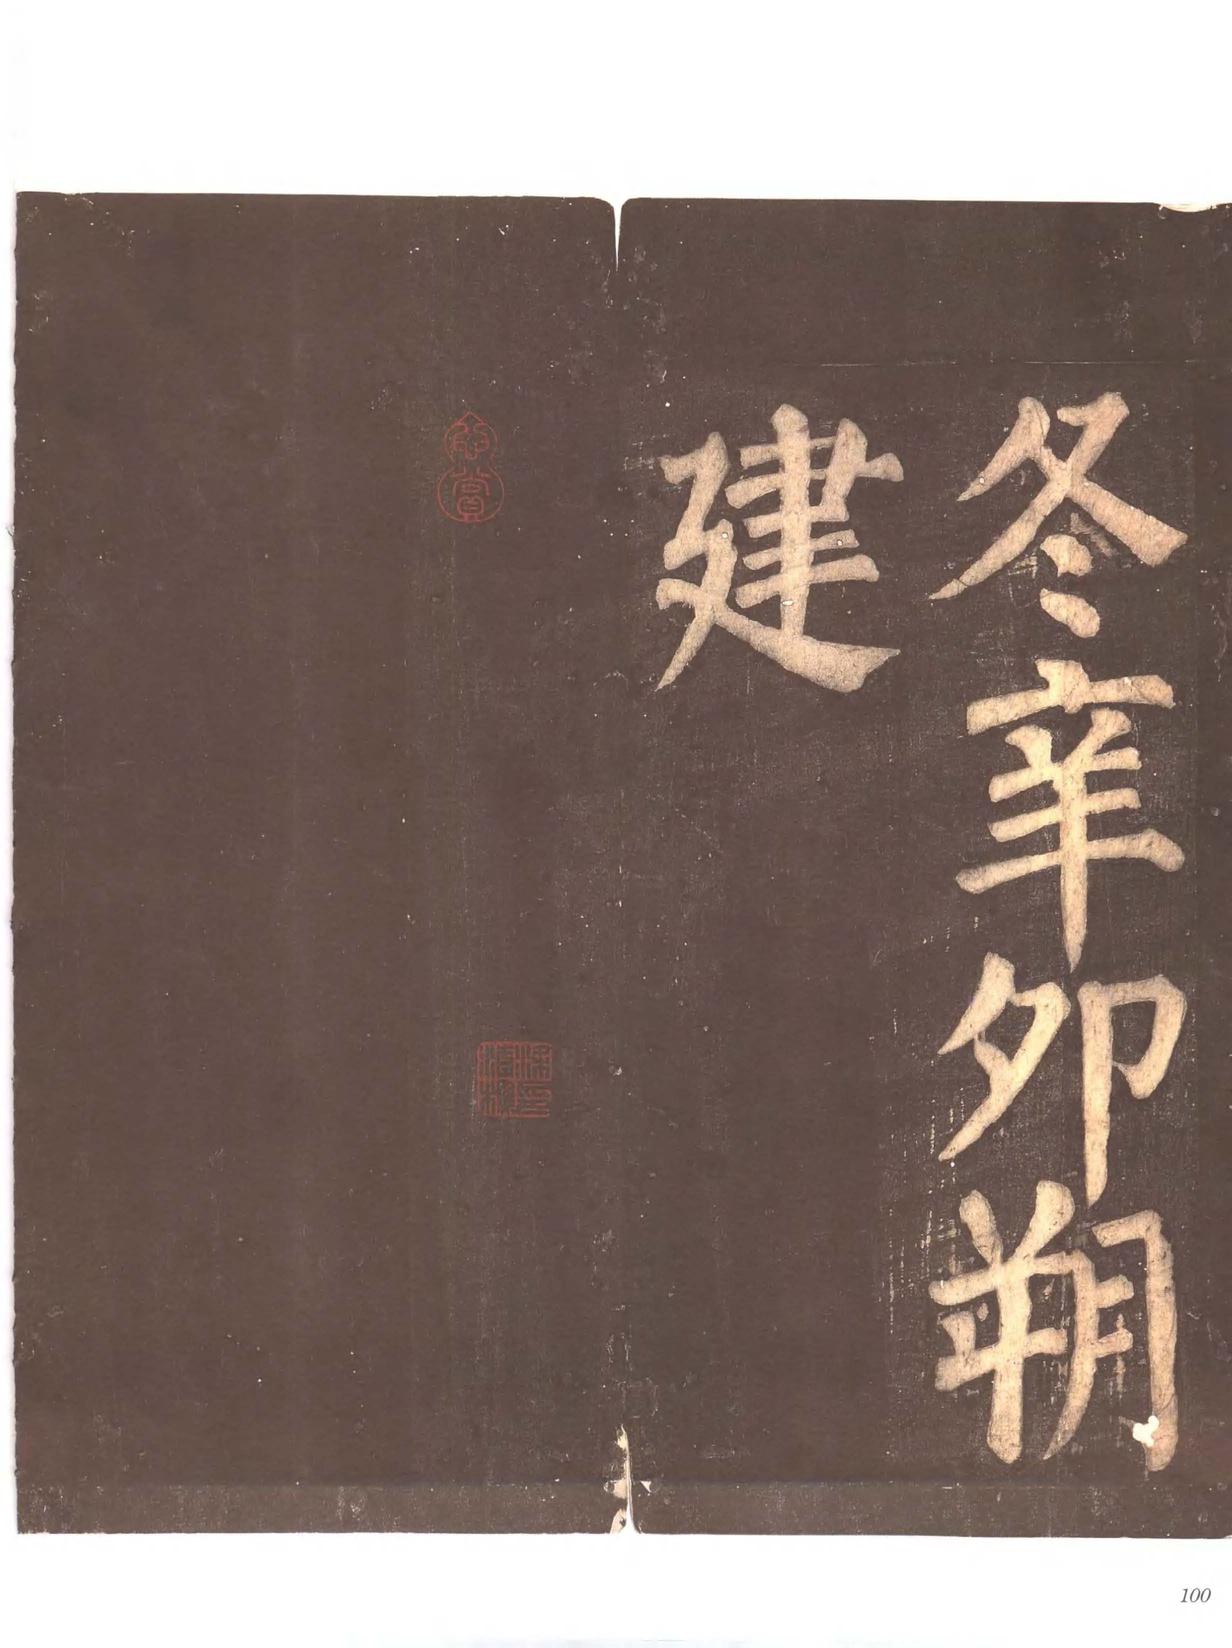 冬辛卯朔
建
100